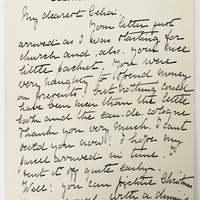 My dearest Celia.
Your letter just
arrived as I was starting for
church and also. Your nice
little packet. You were
very naughty to spend money
on presents, but nothing could
have been nicer than the little
and the eau-de-cologne
Thank you very much. I can't
I hope my
parcel arrived in time. I
sent it off quite early.
Well! you can picture Christmas
with a dinner